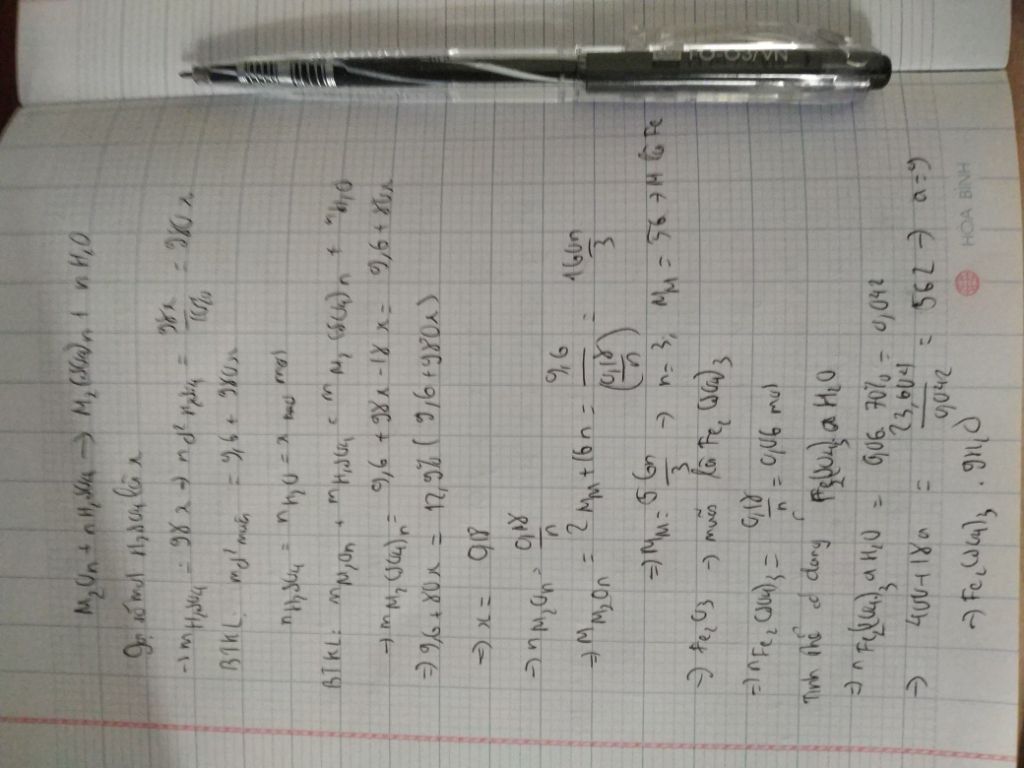 M₂On + nH₂SO₄ → M₂(SO₄)n + nH₂O
Gọi số mol H₂SO₄ là x
→ mH₂SO₄ = 98x → mdd H₂SO₄ = 98x / 10% = 980x
BTKL: mdd muối = 9,6 + 980x
nH₂SO₄ = nH₂O = x mol
BTKL: mM₂On + mH₂SO₄ = m M₂(SO₄)n + mH₂O
→ mM₂(SO₄)n = 9,6 + 98x - 18x = 9,6 + 80x
⇒ 9,6 + 80x = 12,9% (9,6 + 980x)
⇒ x = 0,18
⇒ nM₂On = 0,18 / n
⇒ MM₂On = 2MM + 16n = 9,6 / (0,18 / n) = 160n / 3
⇒ MM = 56n / 3 → n = 3, MM = 56 → M là Fe
→ Fe₂O₃ → muối là Fe₂(SO₄)₃
⇒ nFe₂(SO₄)₃ = 0,18 / n = 0,06 mol
Tinh thể ở dạng Fe₂(SO₄)₃.aH₂O
⇒ nFe₂(SO₄)₃.aH₂O = 0,06.70% = 0,042
⇒ 400 + 18a = 23,604 / 0,042 = 562 → a = 9
⇒ Fe₂(SO₄)₃.9H₂O
TO-03/VN
HOA BÌNH